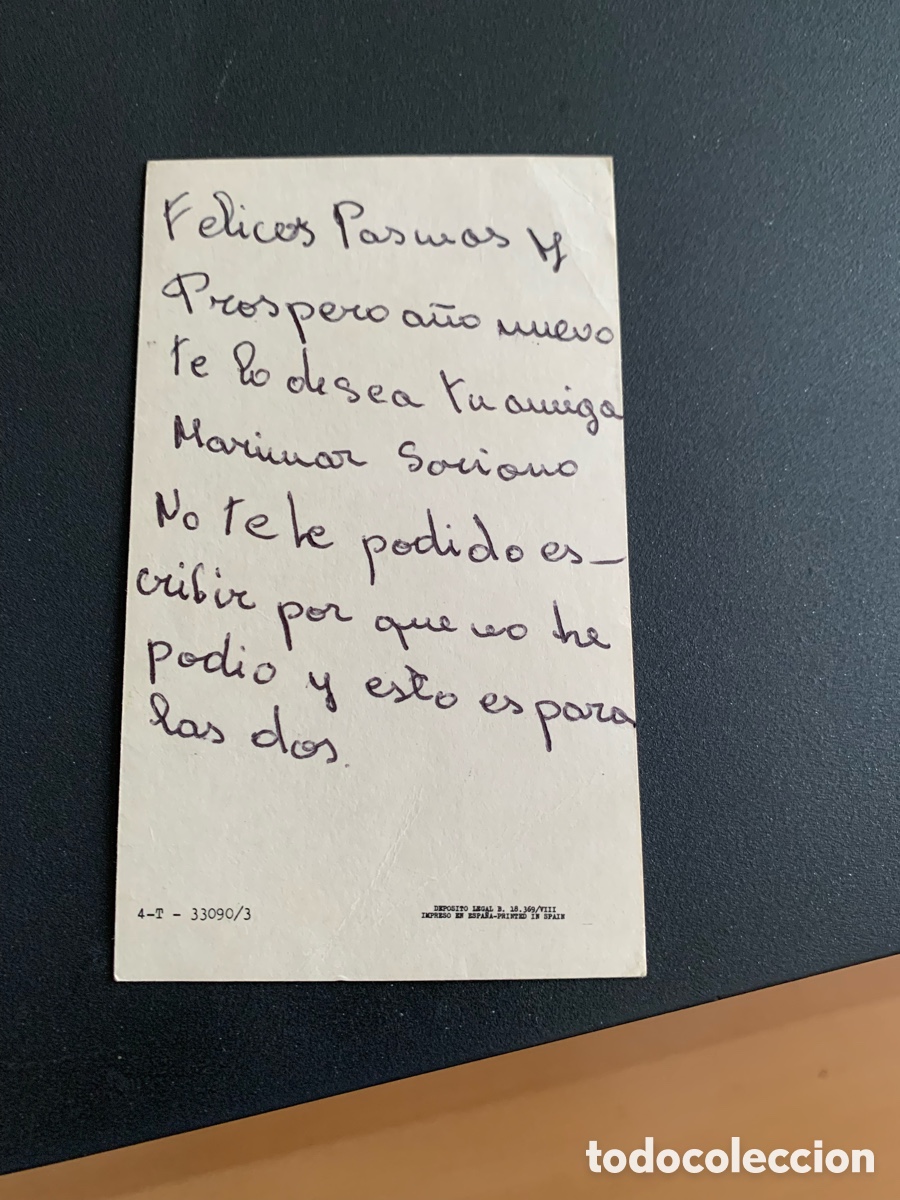 Felices Pascuas y
Prospero año nuevo
te lo desea tu amiga
Marimar Soriano
No te he podido es-
cribir por que no he
podio y esto es para
las dos.
4-T - 33090/3
DEPOSITO LEGAL B. 18.369/VIII
IMPRESO EN ESPAÑA-PRINTED IN SPAIN
todocoleccion